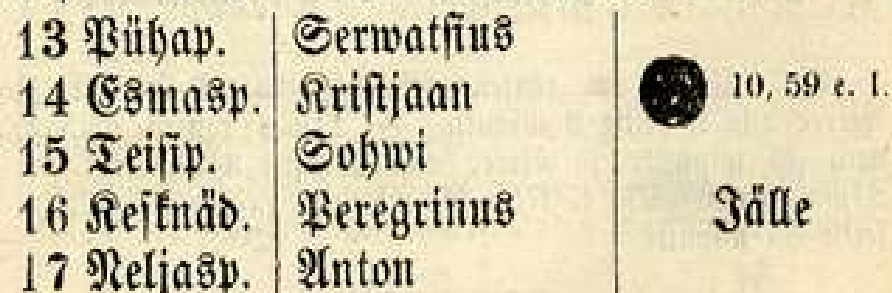 13 Pühap. Serwatsius
14 Esmasp. Kristjaan 10, 59 e. l.
15 Teisip. Sohwi
16 Kesknäd. Peregrinus Jälle
17 Neljasp. Anton